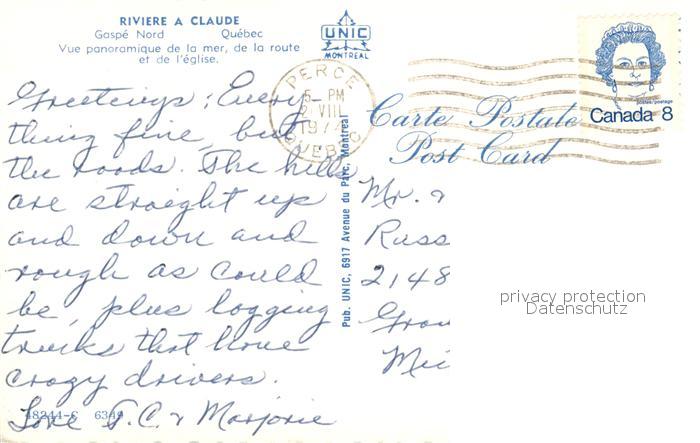 RIVIERE A CLAUDE
Gaspé Nord Québec
Vue panoramique de la mer, de la route
et de l'église.
UNIC
MONTREAL
PERCE
5 PM
VIII
197
QUEBEC
postes/postage
Canada 8
Carte Postale
Post Card
Greetings: Every-
thing fine, but
the roads. The hills
are straight up
and down and
rough as could
be, plus logging
trucks that have
crazy drivers.
Love T.C. & Marjorie
48244-C 6349
Pub. UNIC, 6917 Avenue du Parc, Montreal
Mr. &
Russ
2148
Gran
Mic
privacy protection
Datenschutz